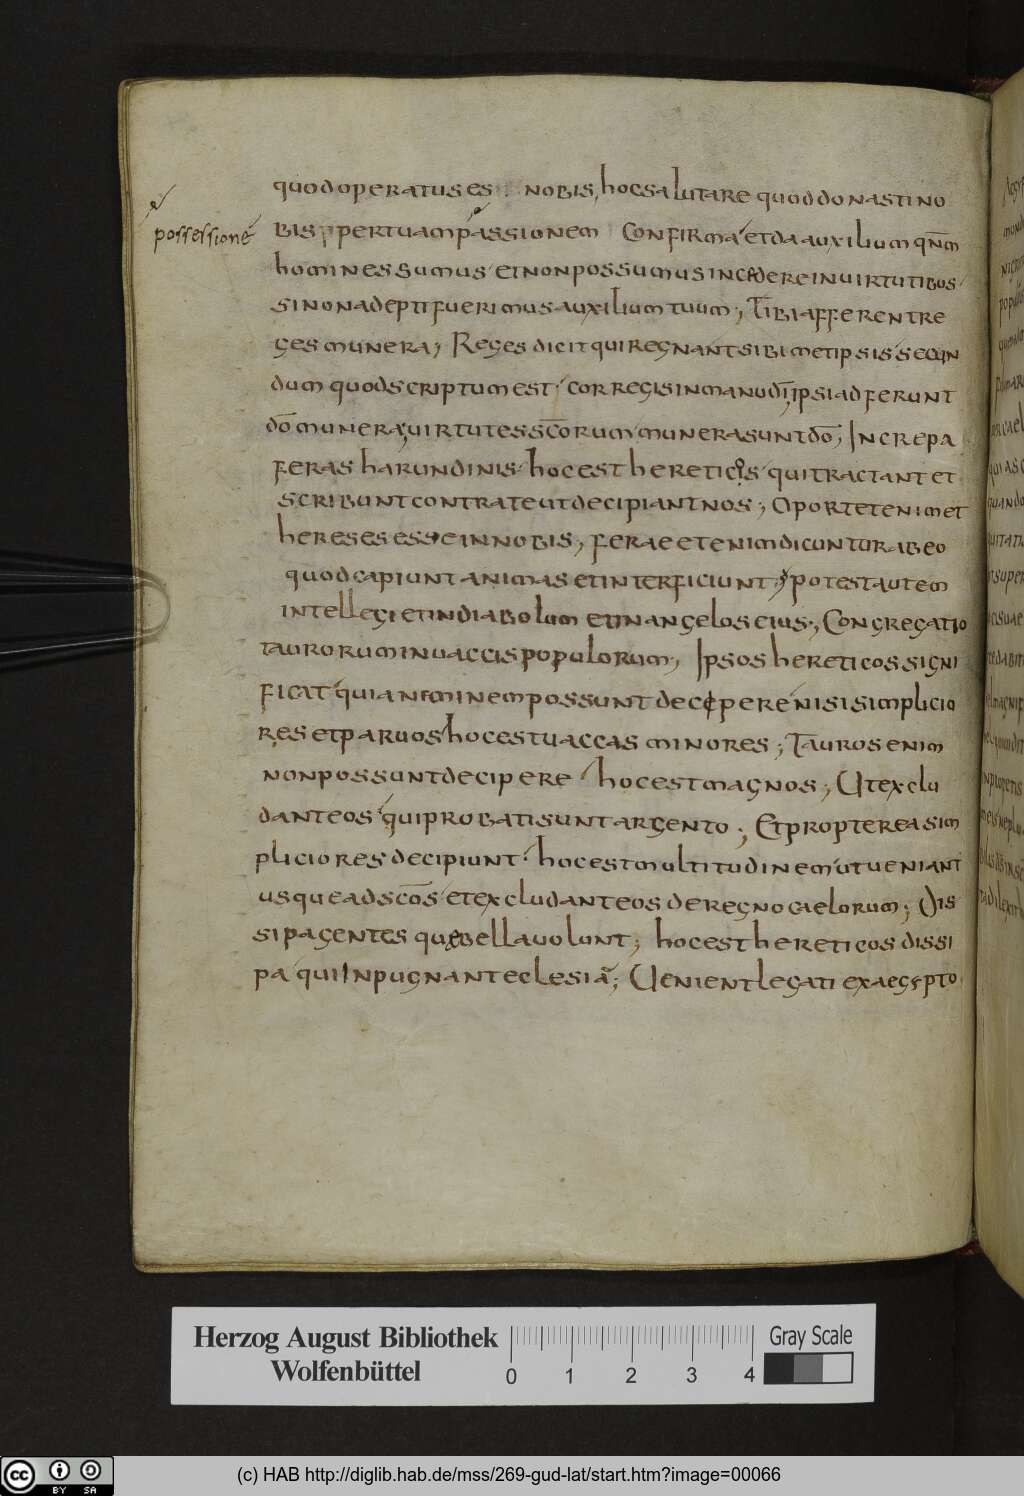 quod operatus es nobis, hoc salutare quod donasti no
possessionē
bis p̱pertuam passionem Confirma et da auxilium qn̄m
homines sumus et non possumus incedere in uirtutibus
si non adepti fuerimus auxilium tuum; Tibi afferent re
ges munera; Reges dicit qui regnant sibi metipsis secun
dum quod scriptum est cor regis in manu dī; ipsi adferunt
dō munera; uirtutes sc̄orum munera sunt dō; Increpa
feras harundinis hoc est hereticos qui tractant et
scribunt contra te ut decipiant nos; Oportet enim et
hereses esse in nobis; ferae etenim dicuntur ab eo
quod capiunt animas et interficiunt; potest autem
intellegi et in diabolum et in angelos eius; Congregatio
taurorum in uaccis populorum; Ipsos hereticos signi
ficat quia neminem possunt decipere nisi simplicio
res et paruos hoc est uaccas minores; Tauros enim
non possunt decipere hoc est magnos; Ut exclu
dant eos qui probati sunt argento; Et propterea sim
pliciores decipiunt hoc est multitudinem ut ueniant
usque ad sc̄os et excludant eos de regno caelorum; Dis
sipa gentes quę bella uolunt; hoc est hereticos dissi
pa qui inpugnant eclesiā; Uenient legati ex aegypto
Herzog August Bibliothek
Wolfenbüttel
0 1 2 3 4
Gray Scale
cc BY SA
(c) HAB http://diglib.hab.de/mss/269-gud-lat/start.htm?image=00066